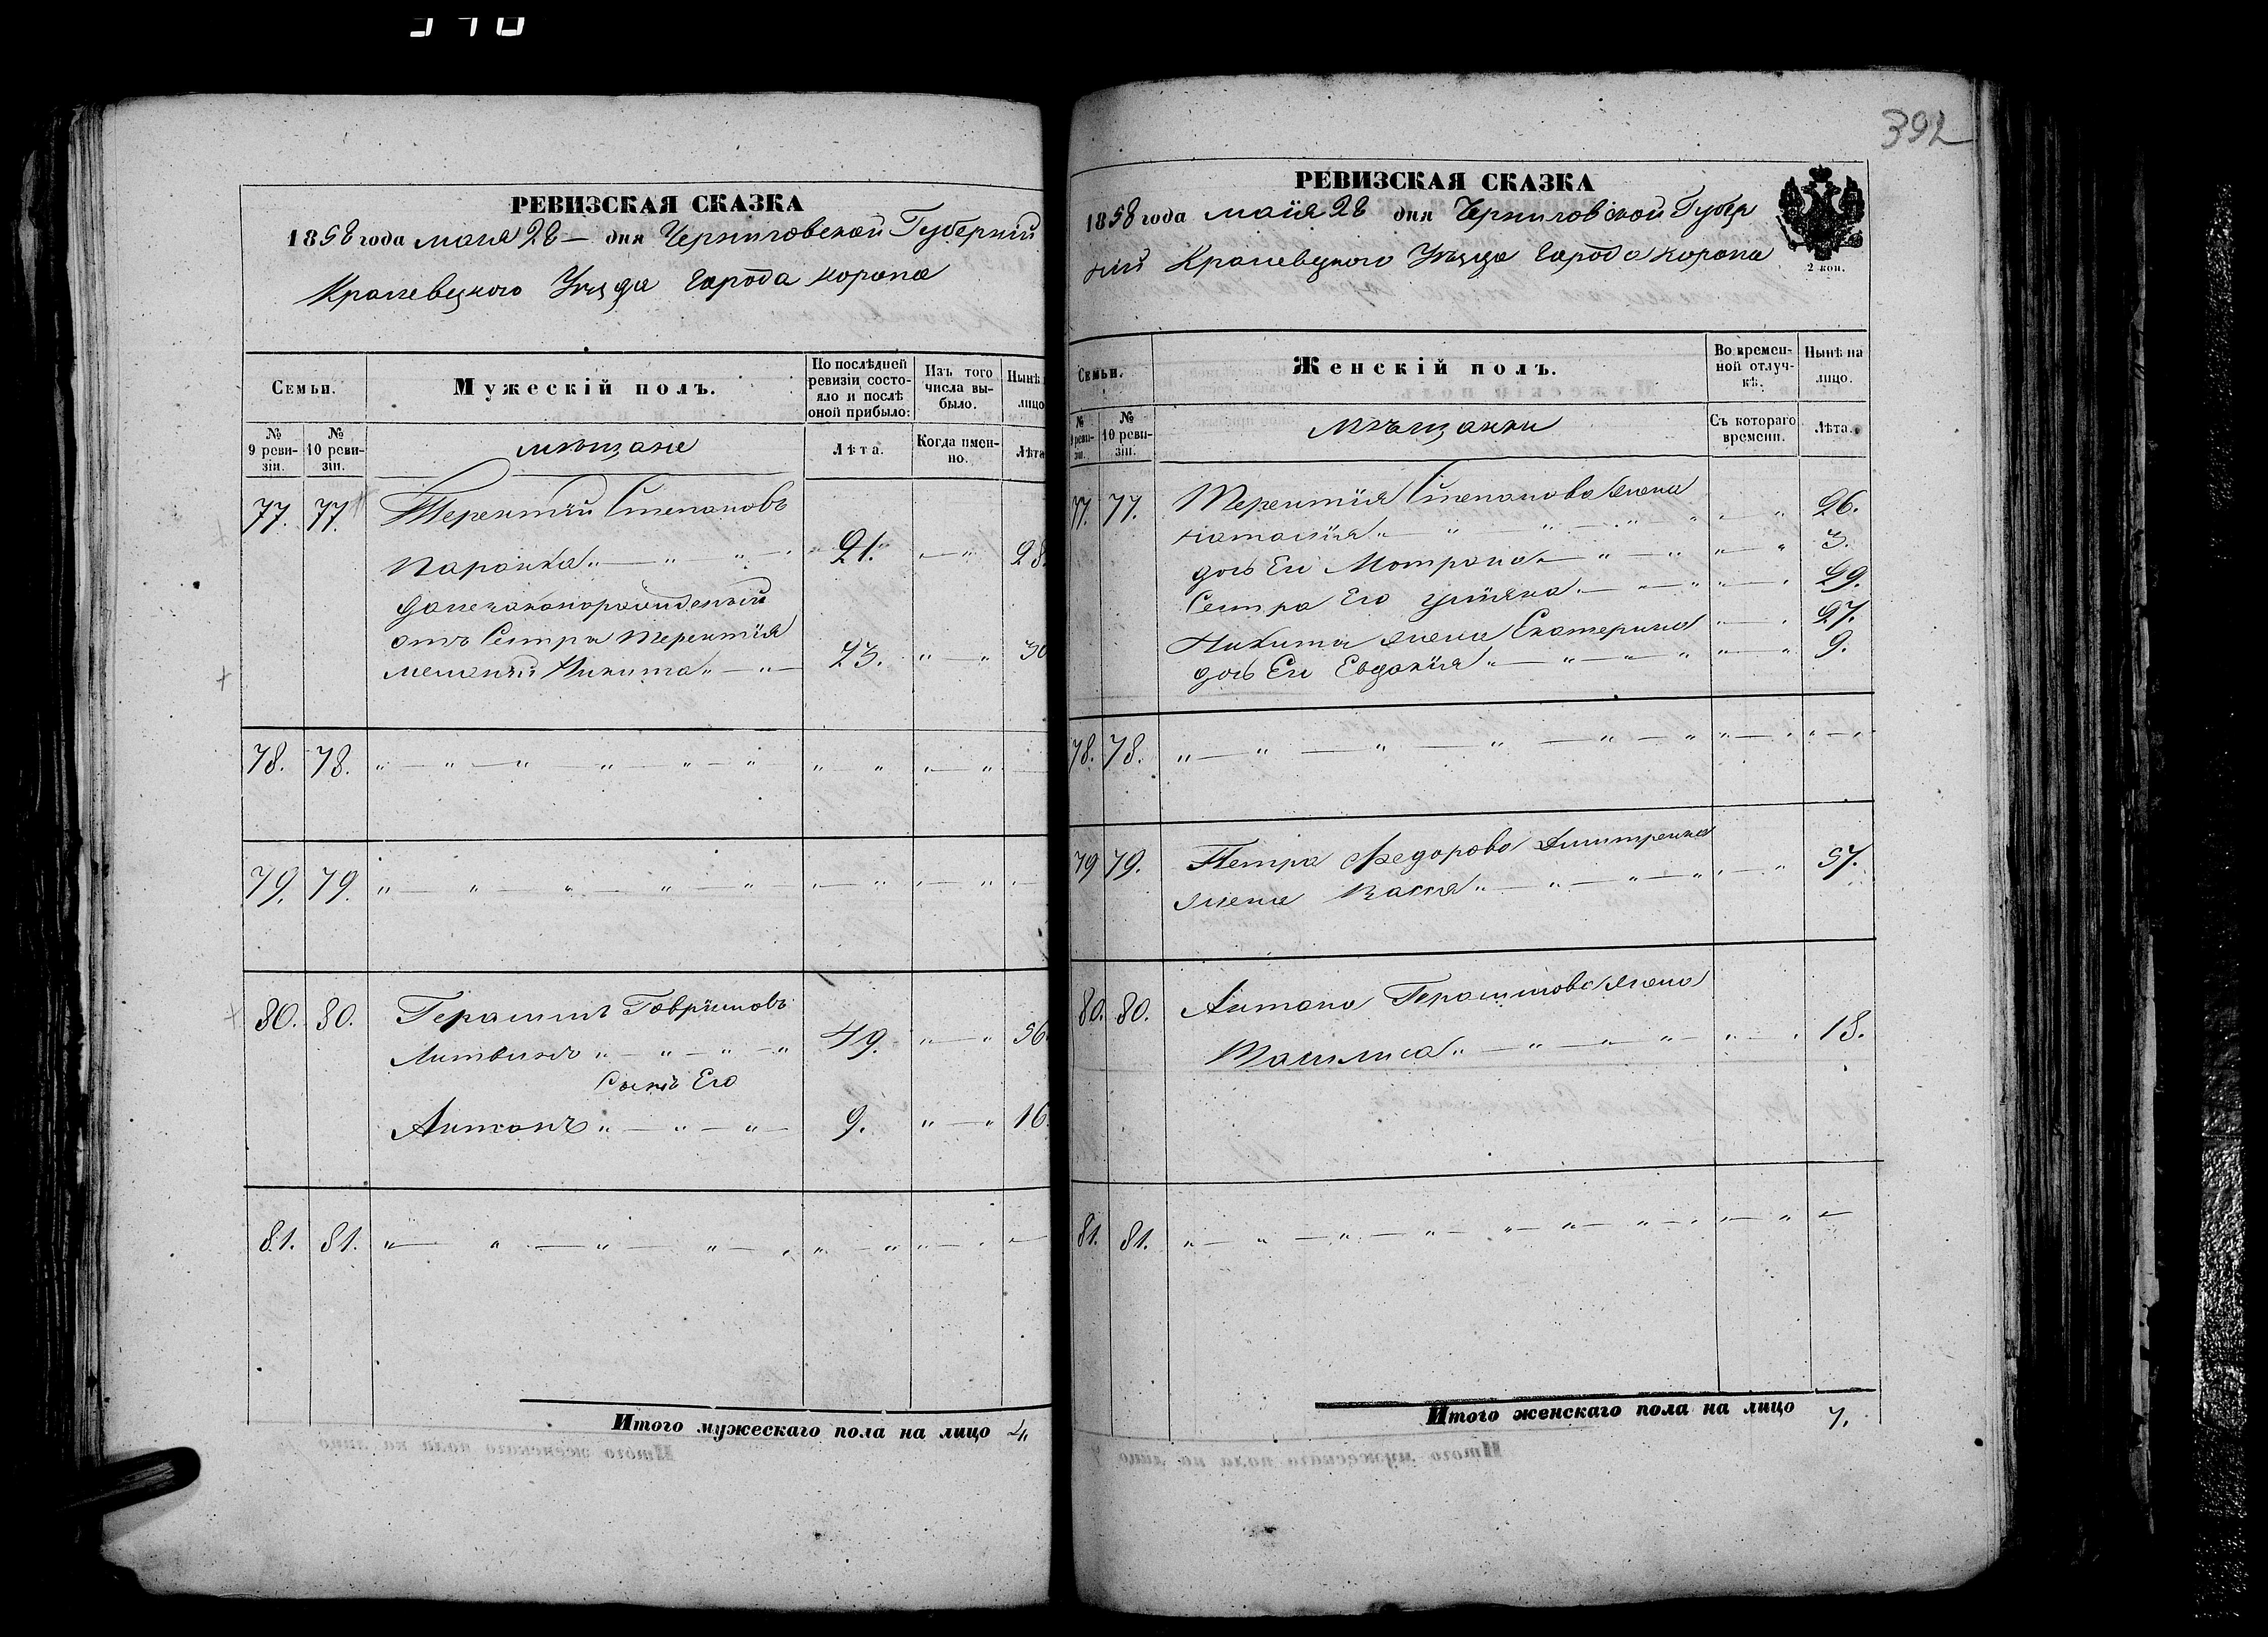 392
РЕВИЗСКАЯ СКАЗКА
1858 года маия 28 — дня Черниговской Губерніи
Кролевецкого Уѣзда Города Коропа
Семьи.
Мужескій полъ.
По послѣдней ревизіи состояло и послѣ оной прибыло:
Изъ того числа выбыло.
Нынѣ лицо
№ 9 ревизіи.
№ 10 ревизіи.
мѣщане
Лѣта.
Когда именно.
Лѣта
77. 77. Терентій Степановъ
Паронка 21. 28.
отъ Сестры Терентія
Никита 23. 30
78. 78.
79. 79.
80. 80. Герасимъ Гавриловъ
Литвинъ 49. 56
Сынъ Его
Антонъ 9. 16.
81. 81.
Итого мужескаго пола на лицо 4.
РЕВИЗСКАЯ СКАЗКА
1858 года маія 28 дня Черниговской Губер
ніи Кролевецкого Уѣзда Города Коропа
2 коп.
Семьи.
Женскій полъ.
Во временной отлучкѣ.
Нынѣ на лицо.
№ 9 ревизіи.
№ 10 ревизіи.
мѣщанки
Съ котораго времени.
Лѣта.
77. 77. Терентія Степанова жена
Наталія 26.
дочь Ея Мотрона 3.
Сестра Его Уліяна 29.
Никиты жена Екатерина 27.
дочь Ея Евдокія 9.
78. 78.
79 79. Петра Федорова Дмитренка
жена Васса 57.
80. 80. Антона Герасимова жена
Василиса 18.
81. 81.
Итого женскаго пола на лицо 7.